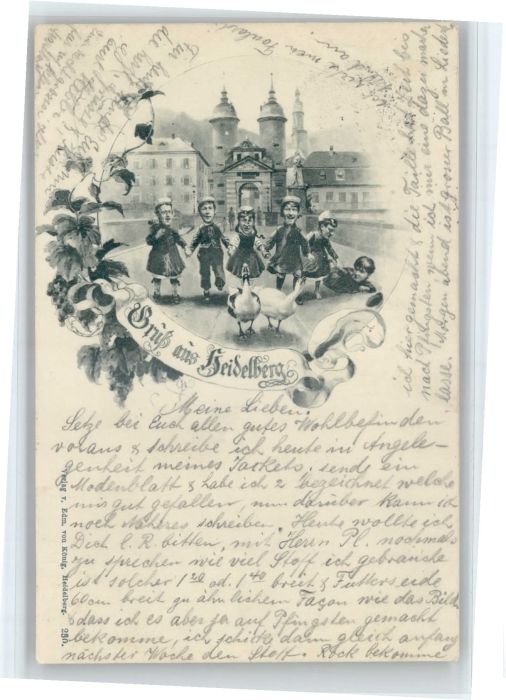 Gruß aus Heidelberg
Meine Lieben.
Setze bei Euch allen gutes Wohlbefinden
voraus & schreibe ich heute in Angele-
genheit meines Jackets, sende ein
Modenblatt & habe ich 2 bezeichnet welche
mir gut gefallen, nun darüber kann ich
noch Näheres schreiben. Heute wollte ich
Dich l. R. bitten, mit Herrn Pl. nochmals
zu sprechen wie viel Stoff ich gebrauche
ist solcher 1 20 od. 1 40 breit & Futterseide
60cm breit zu ähnlichem Façon wie das Bild
& dass ich es aber ja auf Pfingsten gemacht
bekomme, ich schicke dann gleich anfang
nächster Woche den Stoff. Rock bekomme
ich hier gemacht & die Taille hat Zeit bis
nach Pfingsten wenn ich mir eins dazu machen
lasse. Morgen abend ist grosser Ball im Lieder
Verlag v. Edm. von König, Heidelberg. 250.